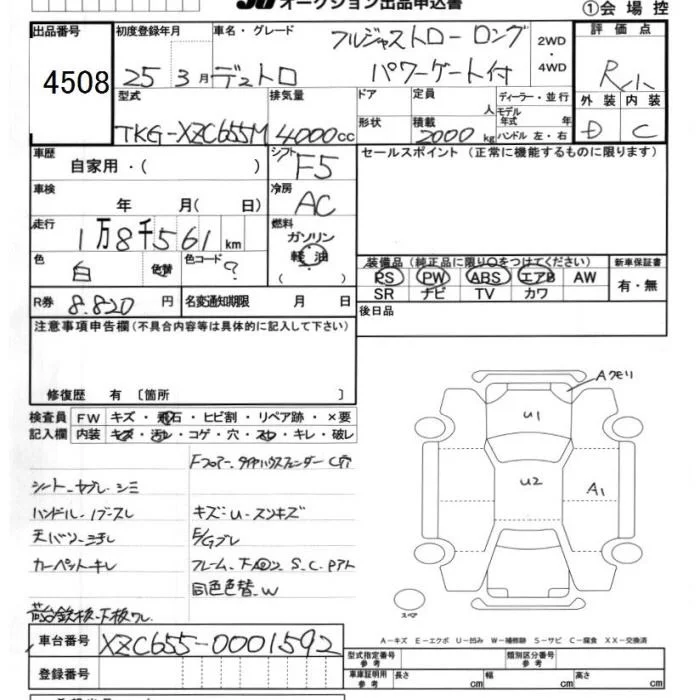 オークション出品申込書
①会場控
出品番号
4508
初度登録年月
25 3月
車名・グレード
デュトロ
フルジャストロー ロング
パワーゲート付
2WD・
4WD
評価点
外装 内装
D C
型式
TKG-XZC655M
排気量
4000cc
ドア
形状
定員
人
積載
2000kg
ディーラー・並行
モデル年式 年
ハンドル 左・右
車歴
自家用・( )
シフト
F5
セールスポイント(正常に機能するものに限ります)
車検
年 月( 日)
冷房
AC
走行
1万8千561km
燃料
ガソリン
軽油
色
白
色替
色コード
?
装備品(純正品に限り○をつけてください)
PS PW ABS エアB AW
SR ナビ TV カワ
新車保証書
有・無
R券
8.820円
名変通知期限 月 日
後日品
注意事項申告欄(不具合内容等は具体的に記入して下さい)
修復歴 有〔箇所 〕
検査員
記入欄
FW キズ・飛石・ヒビ割・リペア跡・×要
内装 キズ・汚レ・コゲ・穴・スレ・キレ・破レ
Fフロアー、タイヤハウスフェンダー C穴
シート、ヤブレ、シミ
ハンドル、1ブスレ
キズ:U・スソキズ
E/Gブレ
カーペットキレ
同色色替、W
Aクモリ
U1
U2
A1
スペア
A-キズ E-エクボ U-凹み W-補修跡 S-サビ C-腐食 XX-交換済
車台番号
XZC655-0001592
型式指定番号
参考
類別区分番号
参考
登録番号
車庫証明用
参考
長さ cm
幅 cm
高さ cm